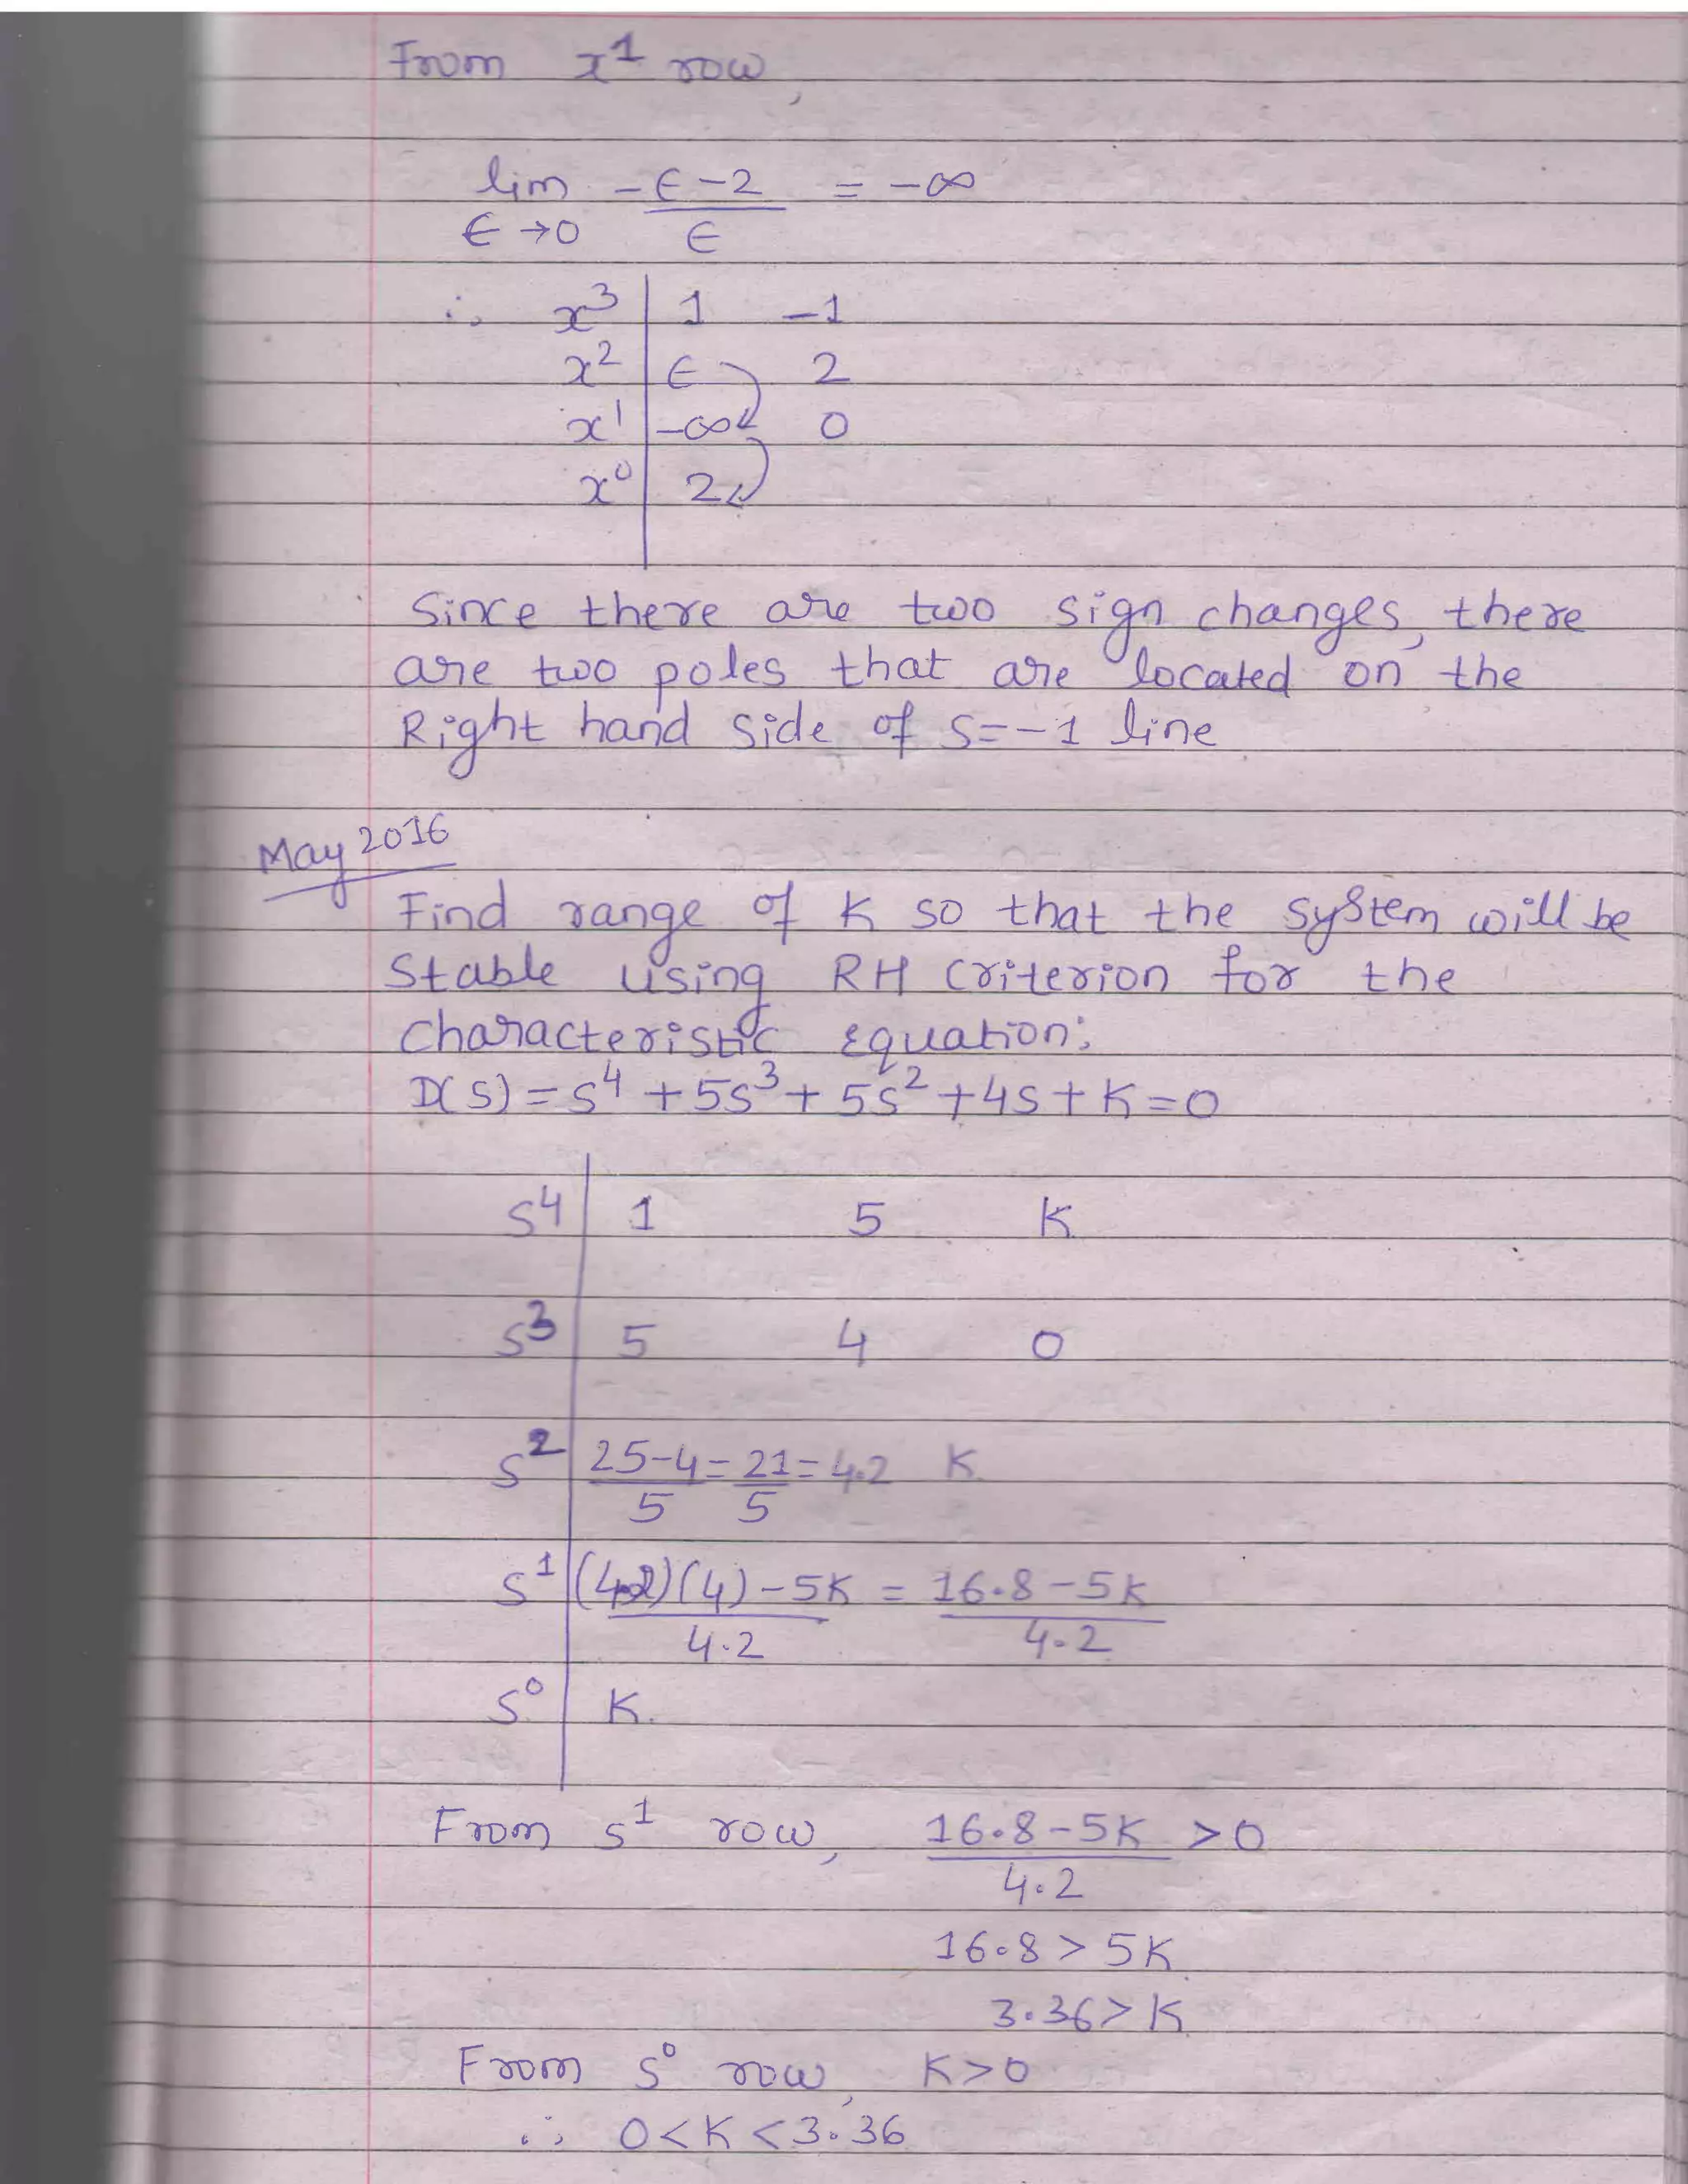 From x¹ row,
lim -ϵ-2 = -∞
ϵ→0 ϵ
∴ x³ 1 -1
x² ϵ 2
x¹ -∞ 0
x⁰ 2
Since there are two sign changes, there
are two poles that are located on the
Right hand side of S=-1 line
May 2016
Find range of K so that the system will be
stable using RH Criterion for the
characteristic equation:
D(s) = s⁴ + 5s³ + 5s² + 4s + K = 0
s⁴ 1 5 K
s³ 5 4 0
s² 25-4 = 21 = 4.2 K
5 5
s¹ (4.2)(4) - 5K = 16.8 - 5K
4.2 4.2
s⁰ K.
From s¹ row, 16.8 - 5K > 0
4.2
16.8 > 5K
3.36 > K
From s⁰ row, K > 0
∴ 0 < K < 3.36